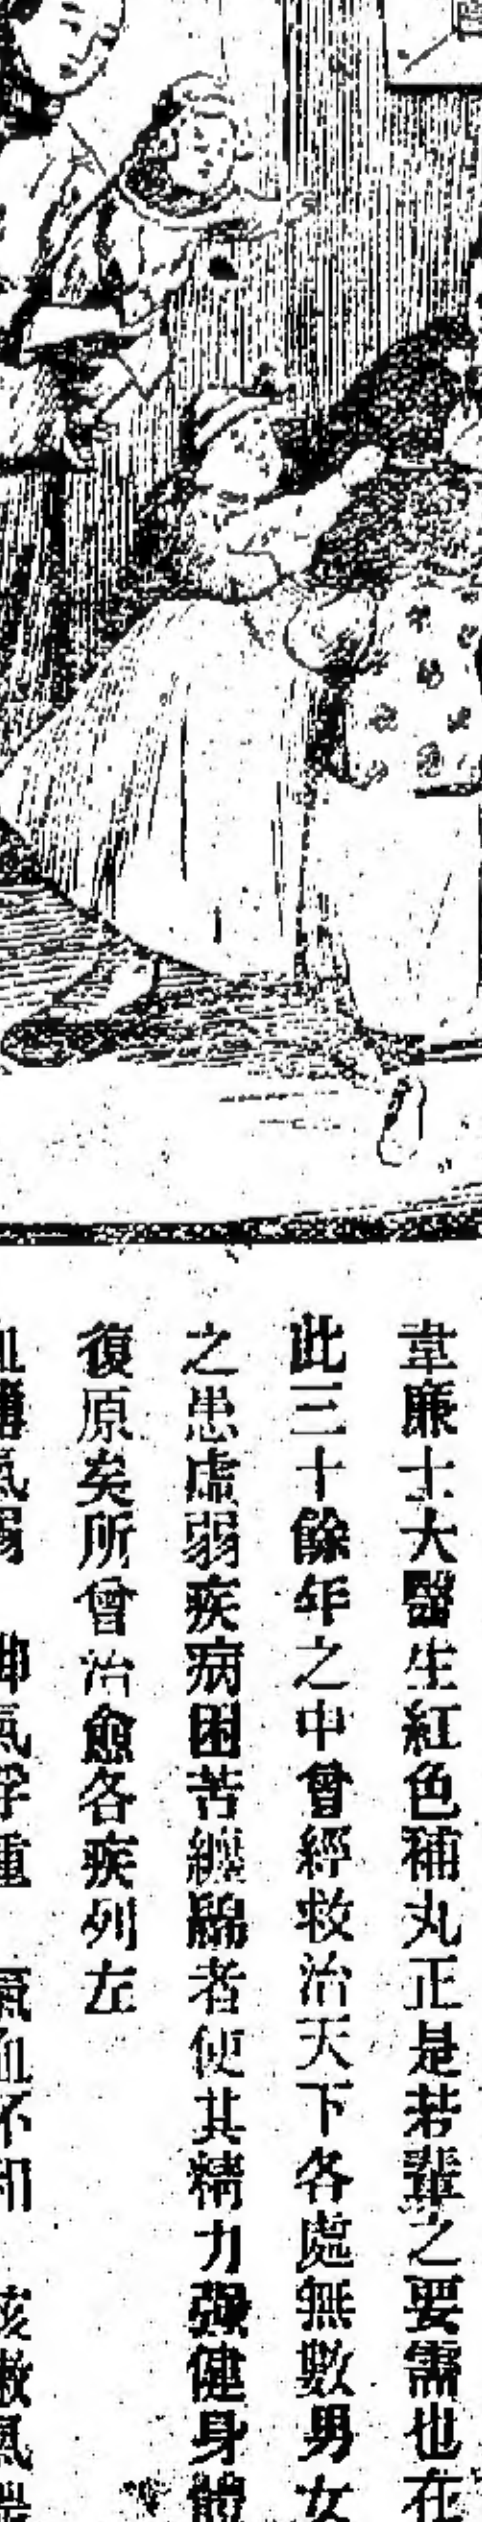 韋廉士大醫生紅色補丸正是若輩之要需也在
此三十餘年之中曾經救治天下各處無數男女
之患虛弱疾病困苦纏綿者使其精力强健身體
復原矣所曾治愈各疾列左